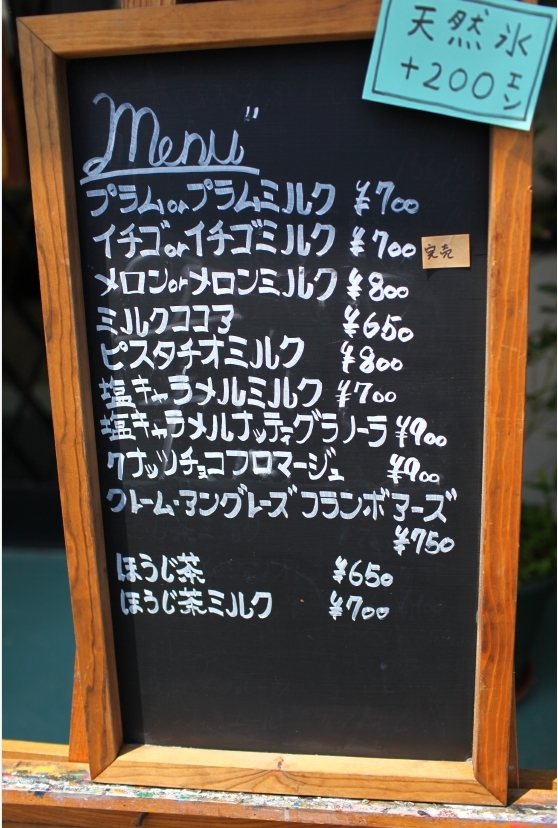 天然氷
+200エン
Menu
プラムorプラムミルク ¥700
イチゴorイチゴミルク ¥700 完売
メロンorメロンミルク ¥800
ミルクココア ¥650
ピスタチオミルク ¥800
塩キャラメルミルク ¥700
塩キャラメルナッティグラノーラ ¥900
クナッツチョコフロマージュ ¥900
クレーム・アングレーズ フランボアーズ
¥750
ほうじ茶 ¥650
ほうじ茶ミルク ¥700